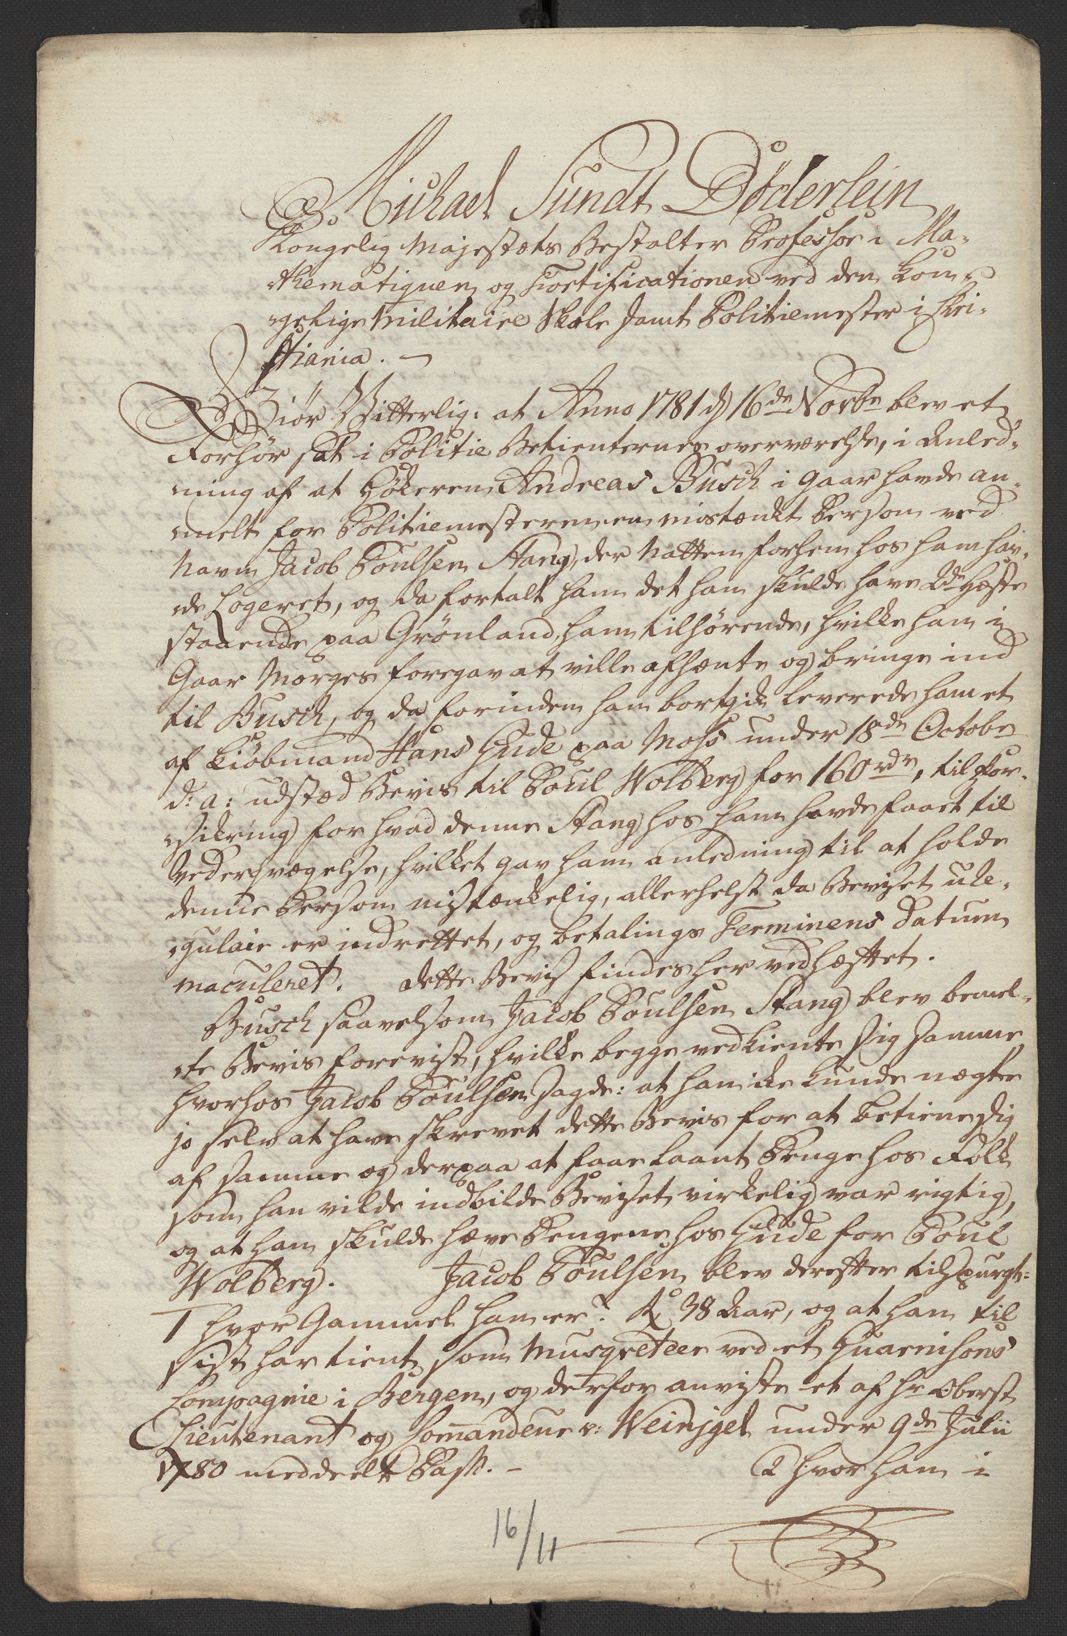 Michael Sundt Döderlein
Kongelig Majestæts Bestalter Professor i Ma-
thematiquen og Fortificationen ved den Kon-
gelige Militaire Skole samt Politiemester i Chri-
stiania. —
Giör Vitterlig: at Anno 1781 d) 16de Novbr blev et
Forhör sat i Politie Betienternes overværelse, i Anled-
ning af at Hökeren Andreas Busch i Gaar havde an-
melt for Politiemesteren en mistænkt Person ved
Navn Jacob Poulsen Stang, der Natten forhen hos ham hav-
de Logeret, og da fortalt ham det han skulde have 2de Heste
staaende paa Grönland, ham tilhörende, hvilke han i
Gaar Morges foregav at ville afhænte og bringe ind
til Busch, og da forinden han bortgik leverede ham et
af Kiöbmand Hans Gude paa Moss under 18de Octobr
d: a: udstæd Bevis til Poul Wolberg for 160 rdr, til For-
sikring for hvad denne Stang hos ham havde faaet til
Vederqvægelse, hvilket gav ham anledning til at holde
denne Person mistænkelig, allerhelst da Beviset ure-
gulair er indrettet, og betalings Terminens Datum
maculeret. Dette Bevis findes her vedhæftet.
Busch saavelsom Jacob Poulsen Stang blev bemel-
te Bevis foreviist, hvilke begge vedkiente sig samme,
hvorhos Jacob Poulsen sagde: at han ikke kunde nægte
jo selv at have skrevet dette Bevis for at betiene sig
af samme og derpaa at faae laant Penge hos Folk
som han vilde indbilde Beviset virkelig var rigtig,
og at han skulde hæve Pengene hos Gude for Poul
Wolberg. Jacob Poulsen blev derefter tilspurgt:
1 hvor Gammel han er? R: 38 Aar, og at han til
sist har tient som Musqveteer ved et Guarnisons
Compagnie i Bergen, og derfor anviste et af Hr Oberst
Lieutenant og Comandeur v: Weinigel under 9de Julii
1780 meddeelt Pass. — 2 hvor han i
16/11